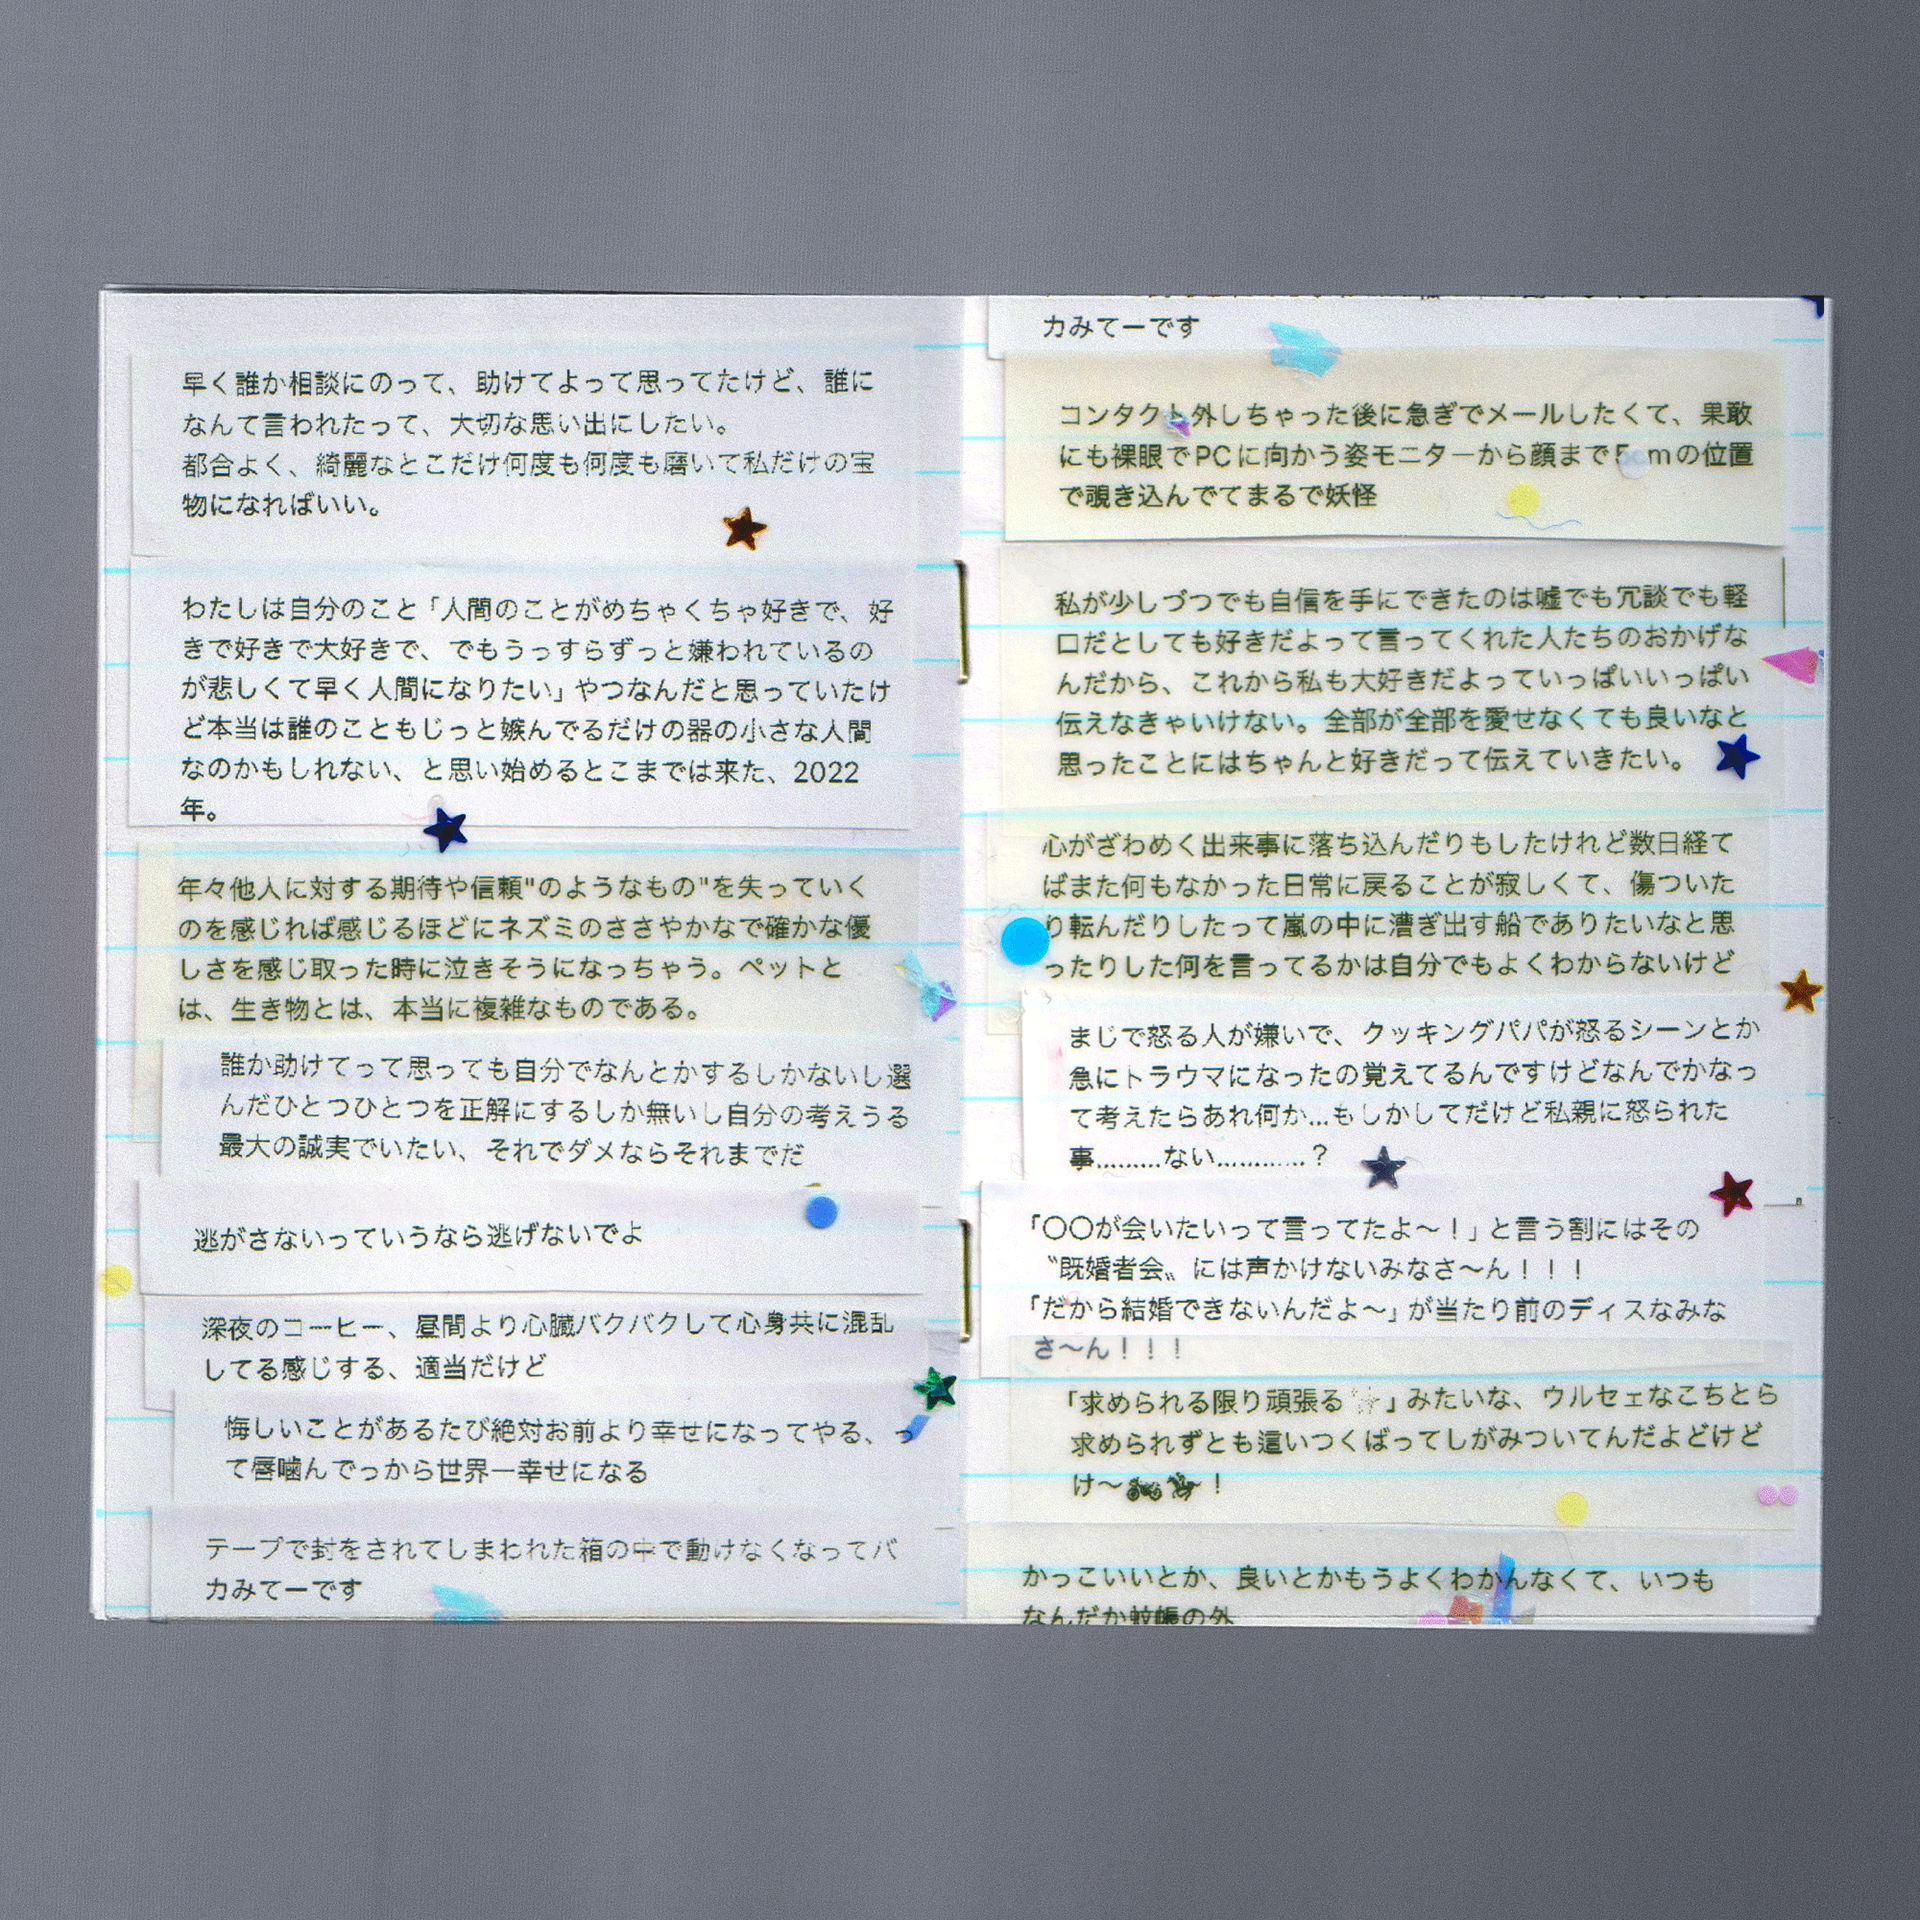 早く誰か相談にのって、助けてよって思ってたけど、誰に
なんて言われたって、大切な思い出にしたい。
都合よく、綺麗なとこだけ何度も何度も磨いて私だけの宝
物になればいい。
わたしは自分のこと「人間のことがめちゃくちゃ好きで、好
きで好きで大好きで、でもうっすらずっと嫌われているの
が悲しくて早く人間になりたい」やつなんだと思っていたけ
ど本当は誰のこともじっと嫉んでるだけの器の小さな人間
なのかもしれない、と思い始めるとこまでは来た、2022
年。
年々他人に対する期待や信頼"のようなもの"を失っていく
のを感じれば感じるほどにネズミのささやかなで確かな優
しさを感じ取った時に泣きそうになっちゃう。ペットと
は、生き物とは、本当に複雑なものである。
誰か助けてって思っても自分でなんとかするしかないし選
んだひとつひとつを正解にするしか無いし自分の考えうる
最大の誠実でいたい、それでダメならそれまでだ
逃がさないっていうなら逃げないでよ
深夜のコーヒー、昼間より心臓バクバクして心身共に混乱
してる感じする、適当だけど
悔しいことがあるたび絶対お前より幸せになってやる、っ
て唇噛んでっから世界一幸せになる
テープで封をされてしまわれた箱の中で動けなくなってバ
カみてーです
カみてーです
コンタクト外しちゃった後に急ぎでメールしたくて、果敢
にも裸眼でPCに向かう姿モニターから顔まで5cmの位置
で覗き込んでてまるで妖怪
私が少しづつでも自信を手にできたのは嘘でも冗談でも軽
口だとしても好きだよって言ってくれた人たちのおかげな
んだから、これから私も大好きだよっていっぱいいっぱい
伝えなきゃいけない。全部が全部を愛せなくても良いなと
思ったことにはちゃんと好きだって伝えていきたい。
心がざわめく出来事に落ち込んだりもしたけれど数日経て
ばまた何もなかった日常に戻ることが寂しくて、傷ついた
り転んだりしたって嵐の中に漕ぎ出す船でありたいなと思
ったりした何を言ってるかは自分でもよくわからないけど
まじで怒る人が嫌いで、クッキングパパが怒るシーンとか
急にトラウマになったの覚えてるんですけどなんでかなっ
て考えたらあれ何か...もしかしてだけど私親に怒られた
事.........ない............？
「〇〇が会いたいって言ってたよ〜！」と言う割にはその
〝既婚者会〟には声かけないみなさ〜ん！！！
「だから結婚できないんだよ〜」が当たり前のディスなみな
さ〜ん！！！
「求められる限り頑張る✨」みたいな、ウルセェなこちとら
求められずとも這いつくばってしがみついてんだよどけど
け〜！
かっこいいとか、良いとかもうよくわかんなくて、いつも
なんだか蚊帳の外